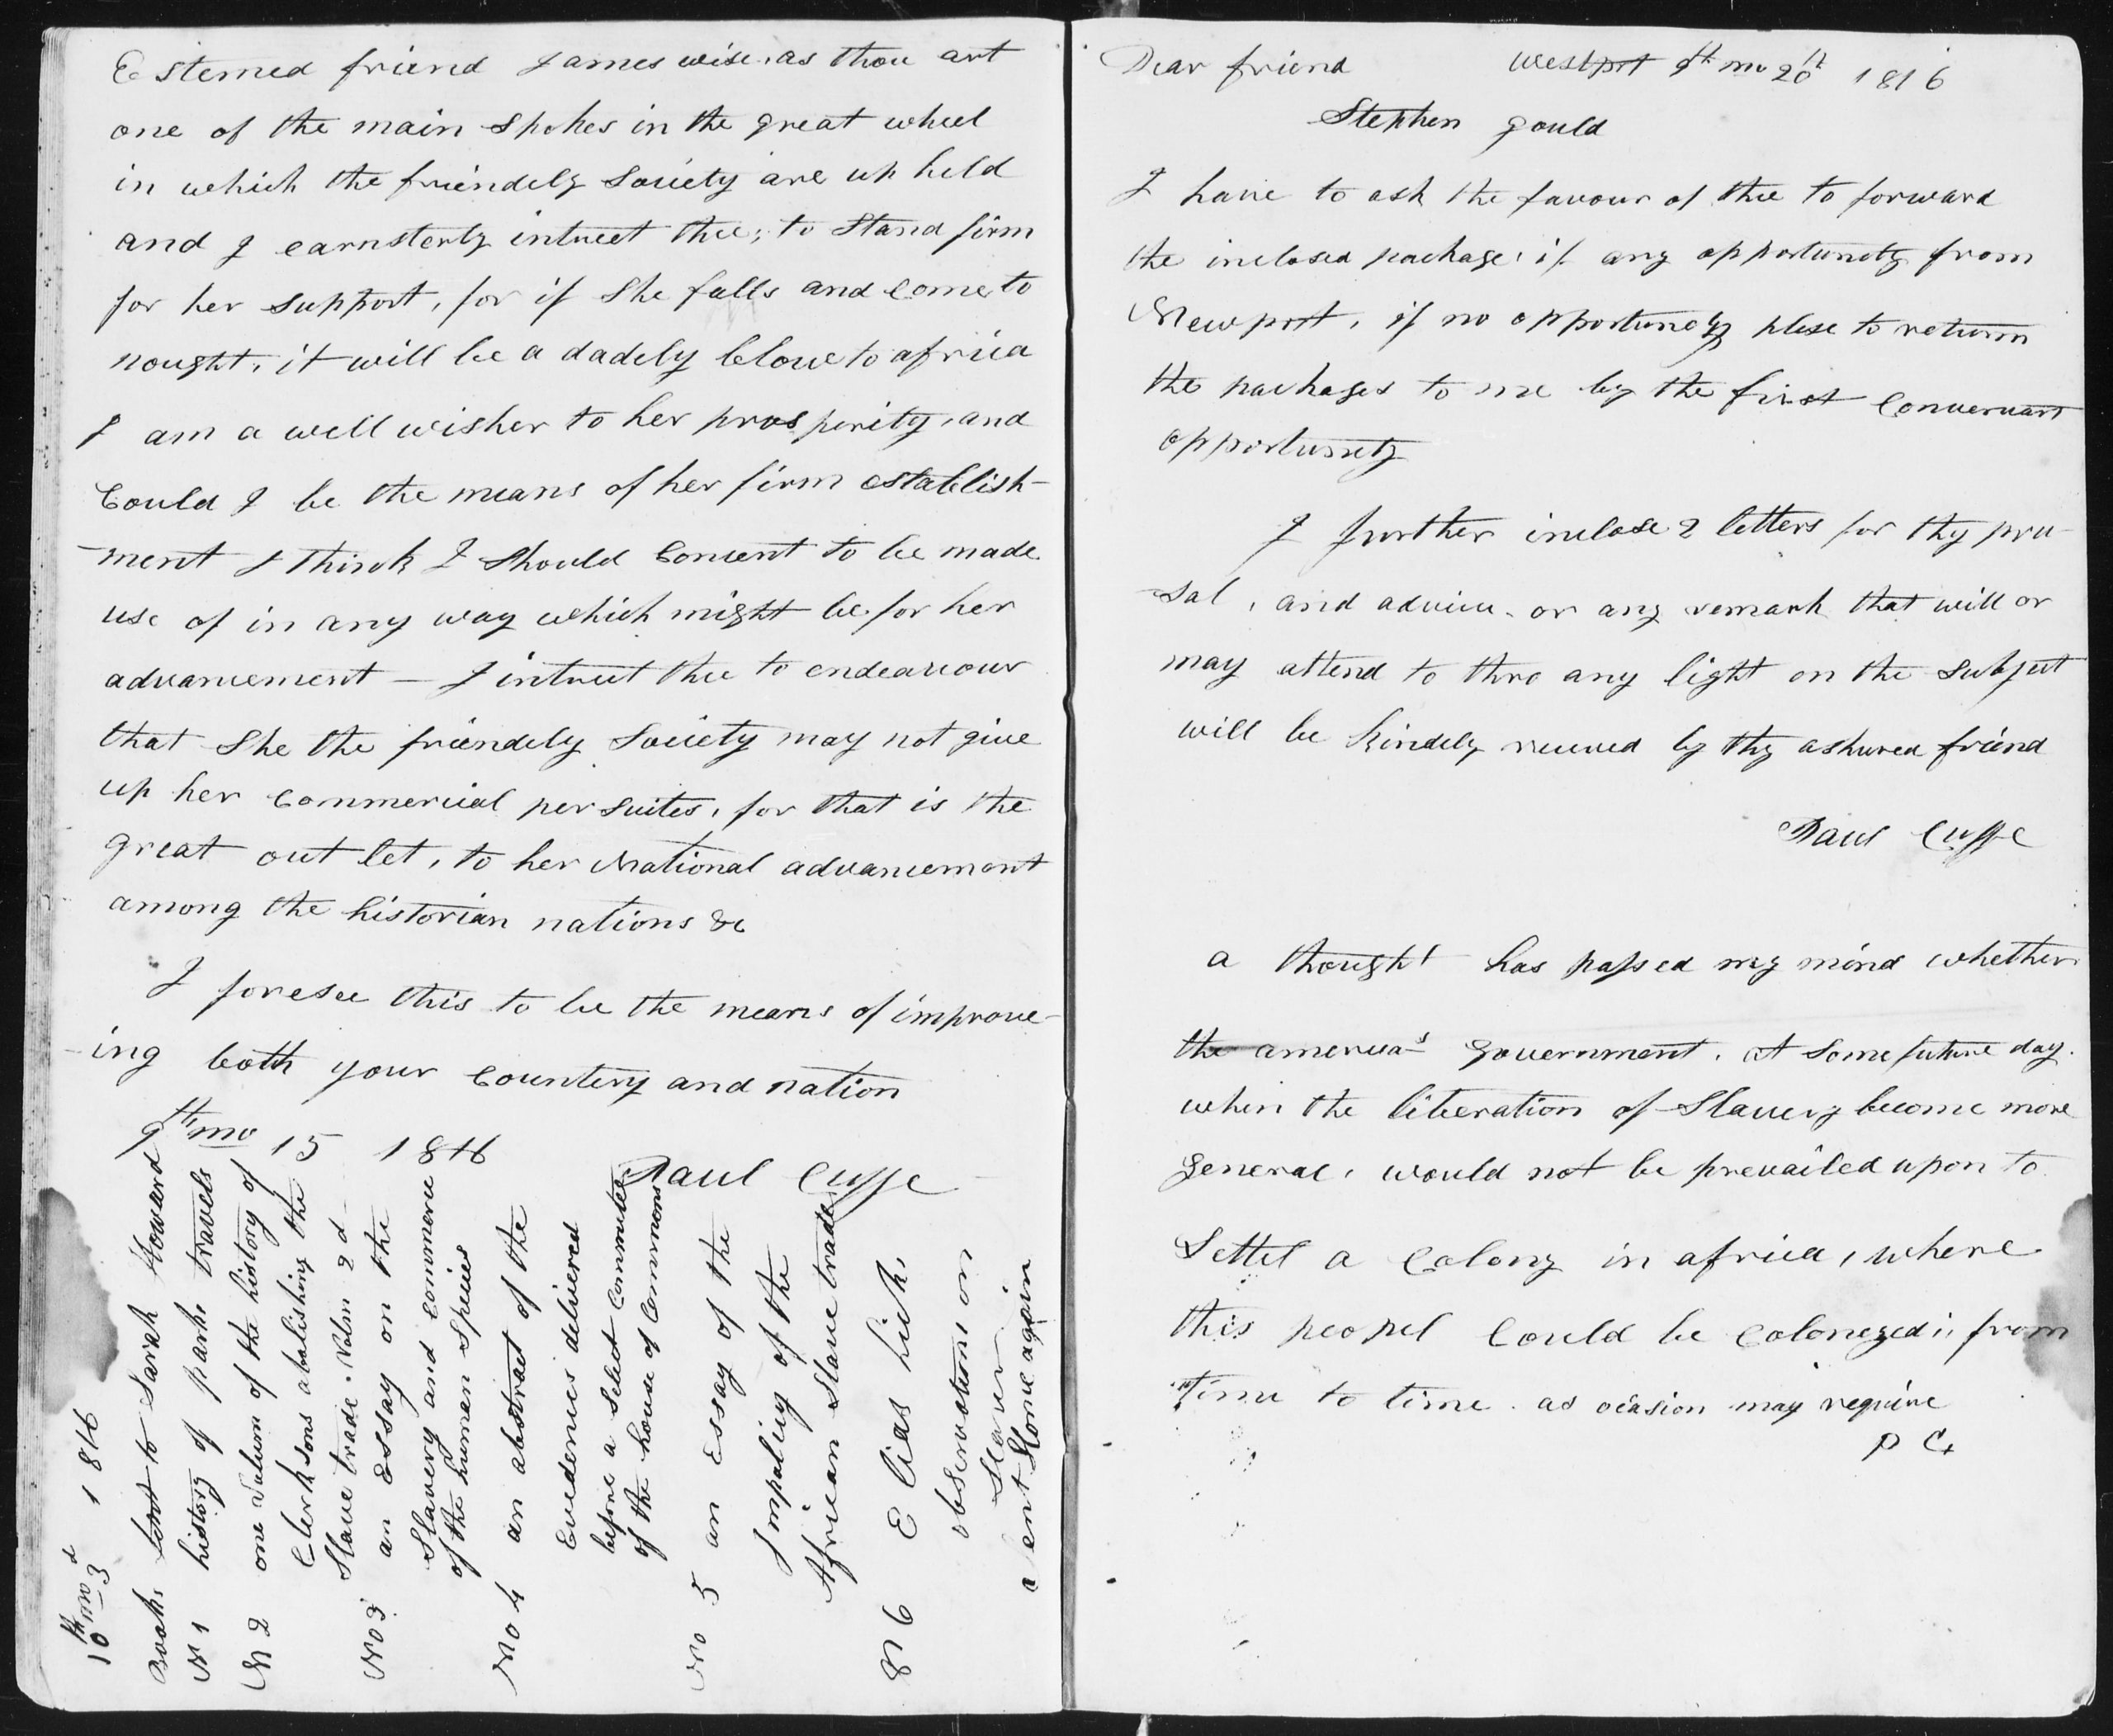 Estemed friend James wise, as thou art
one of the main spokes in the great wheel
in which the friendely Society are up held
and I earnsterly intreet thee; to Stand firm
for her support, for if She falls and come to
nought, it will be a dadely blow to africa
I am a well wisher to her prosperity, and
Could I be the means of her firm establish-
-ment I think I Should Consent to be made
use of in any way which might be for her
advancement — I intreet thee to endeavour
that She the friendely Society may not give
up her commercial persuites, for that is the
great out let, to her National advancement
among the historian nations &c
I foresee this to be the means of improve-
-ing both your Countery and nation
9th mo 15 1816
Paul Cuffe
10th mo 3d 1816
Books lent to Sarah Howard
N 1 history of parks travels
N 2 one Volum of the history of
Clerksons abolishing the
Slave trade. Volm 2d
No 3 an Essay on the
Slavery and Commerce
of the human Species
No 4 an abstract of the
Evedences delivered
before a Select Committee
of the house of Commons
No 5 an Essay of the
Impolicy of the
African Slave trade
N 6 Elias hick,
observations on
Slaver
Sent Home again
Dear friend Westport 9th mo 20th 1816
Stephen gould
I have to ask the favour of thee to forward
the inclosed package, if any opportunety from
Newport, if no opportunety plese to return
the packages to me by the first Convenant
opportunety
I further inclose 2 letters for thy pru-
-sal, and advice. or any remark that will or
may attend to thro any light on the Subject
will be kindely received by thy ashured friend
Paul Cuffe
a thought has passed my mind whether
the america's government. At Some future day.
when the liberation of Slavery become more
general, would not be prevailed upon to
Settel a Colony in africa, where
this peopel Could be Colonezed, from
time to time. as ocasion may require
P C